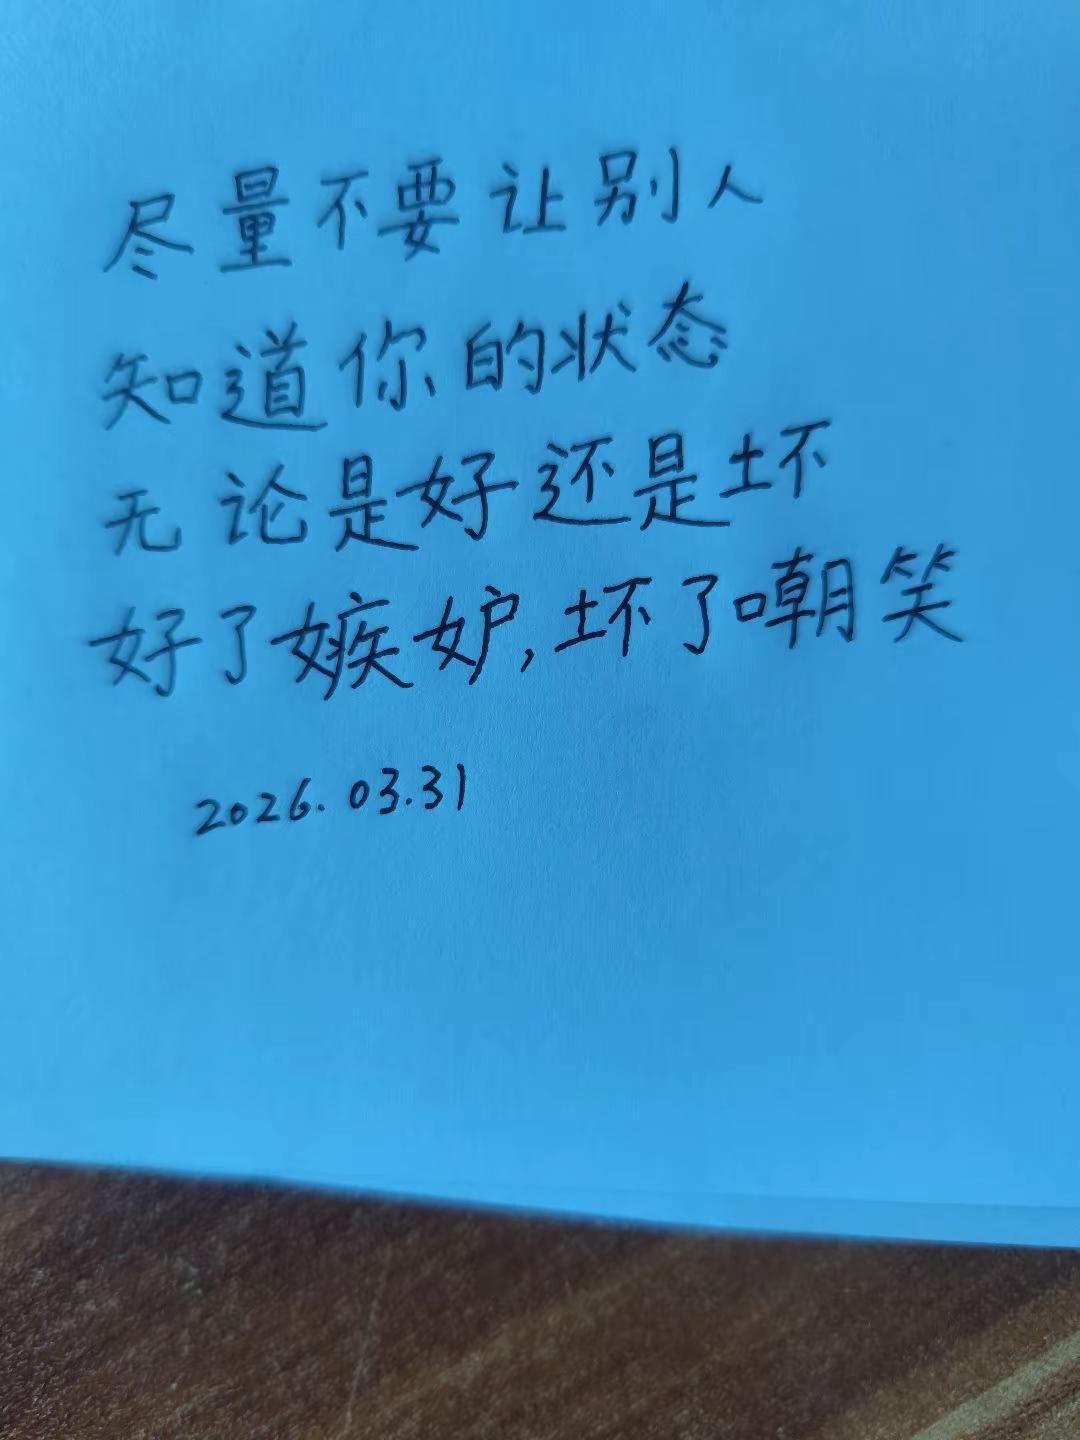 尽量不要让别人
知道你的状态
无论是好还是坏
好了嫉妒,坏了嘲笑
2026.03.31